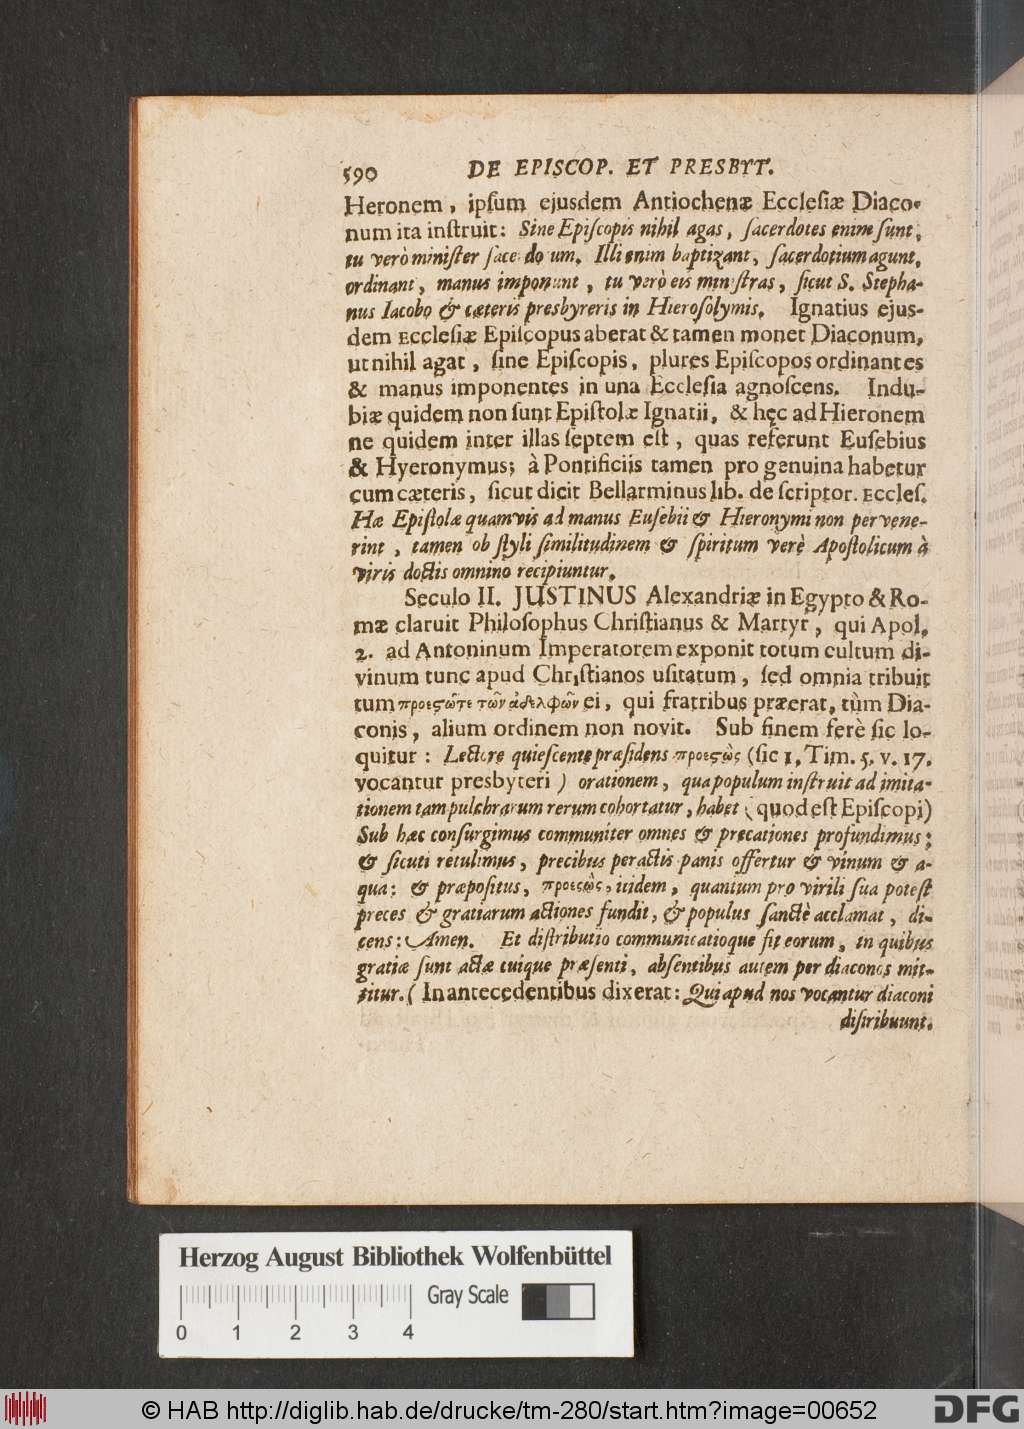 590 DE EPISCOP. ET PRESBYT.
Heronem, ipſum ejuſdem Antiochenæ Eccleſiæ Diaco-
num ita inſtruit: Sine Epiſcopis nihil agas, ſacerdotes enim ſunt,
tu verò miniſter ſace do um. Illi enim baptizant, ſacerdotium agunt,
ordinant, manus imponunt, tu verò eis miniſtras, ſicut S. Stepha-
nus Iacobo & cæteris presbyreris in Hieroſolymis. Ignatius ejus-
dem Eccleſiæ Epiſcopus aberat & tamen monet Diaconum,
ut nihil agat, ſine Epiſcopis, plures Epiſcopos ordinantes
& manus imponentes in una Eccleſia agnoſcens. Indu-
biæ quidem non ſunt Epiſtolæ Ignatii, & hęc ad Hieronem
ne quidem inter illas ſeptem eſt, quas referunt Euſebius
& Hyeronymus; à Pontificiis tamen pro genuina habetur
cum cæteris, ſicut dicit Bellarminus lib. de ſcriptor. Eccleſ.
Hæ Epiſtolæ quamvis ad manus Euſebii & Hieronymi non pervene-
rint, tamen ob ſtyli ſimilitudinem & ſpiritum verè Apoſtolicum à
viris doctis omnino recipiuntur.
Seculo II. JUSTINUS Alexandriæ in Egypto & Ro-
mæ claruit Philoſophus Chriſtianus & Martyr, qui Apol.
2. ad Antoninum Imperatorem exponit totum cultum di-
vinum tunc apud Chriſtianos uſitatum, ſed omnia tribuit
tum προεςῶτε τῶν ἀδελφῶν ei, qui fratribus præerat, tùm Dia-
conis, alium ordinem non novit. Sub finem ferè ſic lo-
quitur: Lectore quieſcente præſidens προεςὼς (ſic 1. Tim. 5. v. 17.
vocantur presbyteri) orationem, qua populum inſtruit ad imita-
tionem tam pulchrarum rerum cohortatur, habet (quod eſt Epiſcopi)
Sub hæc conſurgimus communiter omnes & precationes profundimus;
& ſicuti retulimus, precibus peractis panis offertur & vinum & a-
qua: & præpoſitus, προεςὼς, itidem, quantum pro virili ſua poteſt
preces & gratiarum actiones fundit, & populus ſanctè acclamat, di-
cens: Amen. Et diſtributio communicatioque fit eorum, in quibus
gratiæ ſunt actæ cuique præſenti, abſentibus autem per diaconos mit-
titur. (In antecedentibus dixerat: Qui apud nos vocantur diaconi
diſtribuunt.
Herzog August Bibliothek Wolfenbüttel
Gray Scale
0 1 2 3 4
© HAB http://diglib.hab.de/drucke/tm-280/start.htm?image=00652
DFG